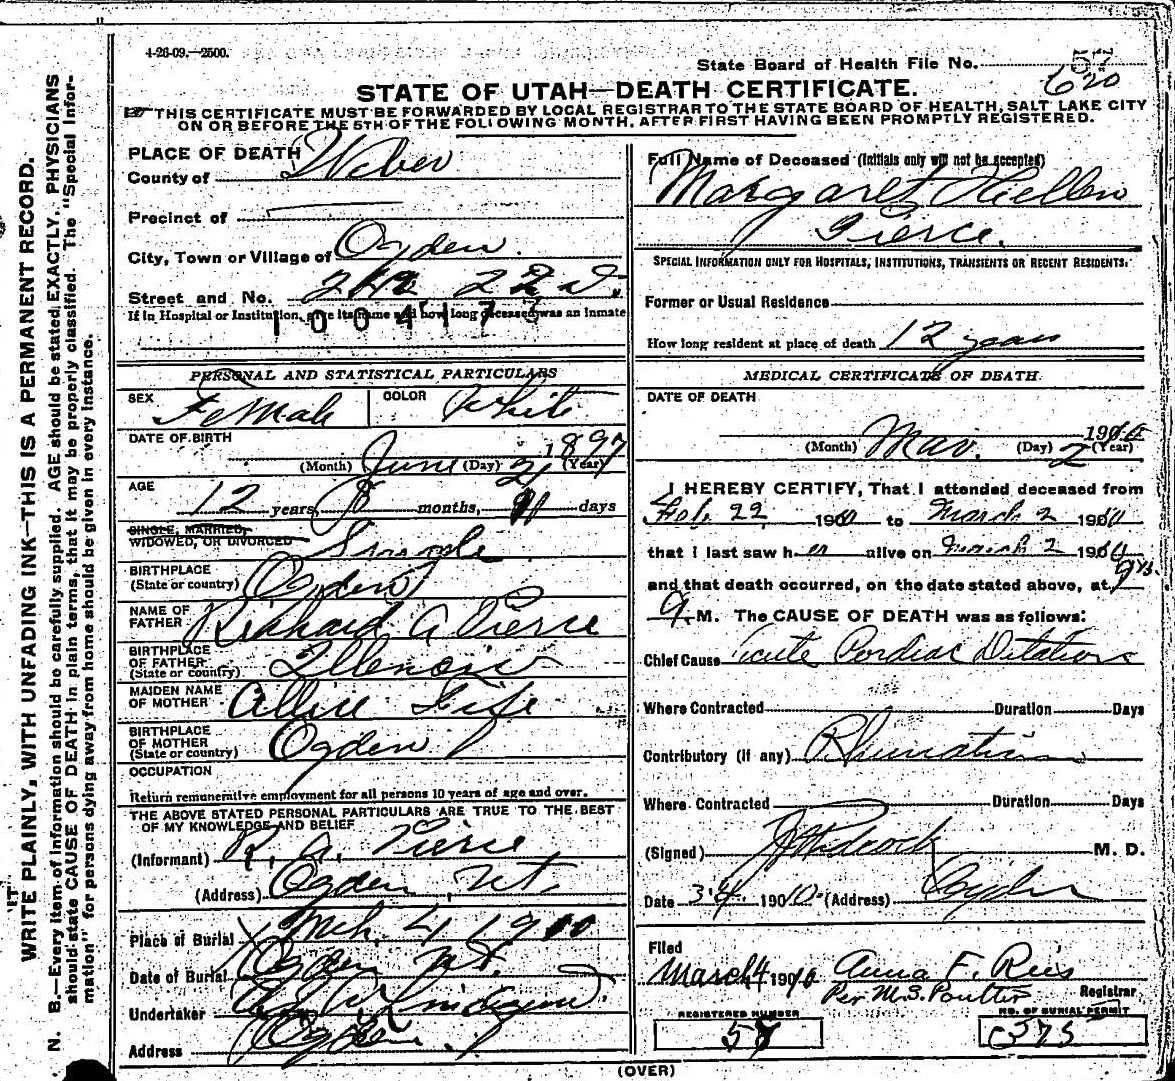 4-26-09.—2500.
State Board of Health File No. 57
620
STATE OF UTAH—DEATH CERTIFICATE.
THIS CERTIFICATE MUST BE FORWARDED BY LOCAL REGISTRAR TO THE STATE BOARD OF HEALTH, SALT LAKE CITY
ON OR BEFORE THE 5TH OF THE FOLLOWING MONTH, AFTER FIRST HAVING BEEN PROMPTLY REGISTERED.
WRITE PLAINLY, WITH UNFADING INK—THIS IS A PERMANENT RECORD.
N. B.—Every item of information should be carefully supplied. AGE should be stated EXACTLY. PHYSICIANS
should state CAUSE OF DEATH in plain terms, that it may be properly classified. The "Special Infor-
mation" for persons dying away from home should be given in every instance.
PLACE OF DEATH
County of Weber
Precinct of
City, Town or Village of Ogden
Street and No. 22d.
If in Hospital or Institution, give its name and how long deceased was an inmate
1004173
PERSONAL AND STATISTICAL PARTICULARS
SEX Female COLOR White
DATE OF BIRTH
(Month) June (Day) 21 1897 (Year)
AGE
12 years, 8 months, 11 days
SINGLE, MARRIED,
WIDOWED, OR DIVORCED Single
BIRTHPLACE
(State or country) Ogden
NAME OF
FATHER Richard A Pierce
BIRTHPLACE
OF FATHER
(State or country) Illenois
MAIDEN NAME
OF MOTHER Allice Fife
BIRTHPLACE
OF MOTHER
(State or country) Ogden
OCCUPATION
Return remunerative employment for all persons 10 years of age and over.
THE ABOVE STATED PERSONAL PARTICULARS ARE TRUE TO THE BEST
OF MY KNOWLEDGE AND BELIEF
(Informant) R. A. Pierce
(Address) Ogden Ut.
Place of Burial Mch. 4 1910
Date of Burial Ogden Ut.
Undertaker
Address Ogden
Full Name of Deceased (Initials only will not be accepted)
Margaret Hellen
Pierce.
SPECIAL INFORMATION ONLY FOR HOSPITALS, INSTITUTIONS, TRANSIENTS OR RECENT RESIDENTS.
Former or Usual Residence
How long resident at place of death 12 years
MEDICAL CERTIFICATE OF DEATH.
DATE OF DEATH
(Month) Mar. (Day) 2 1910 (Year)
I HEREBY CERTIFY, That I attended deceased from
Feb. 22 1910 to March 2 1910
that I last saw her alive on March 2 1910
and that death occurred, on the date stated above, at 9
M. The CAUSE OF DEATH was as follows:
Chief Cause Acute Cardiac Dilation
Where Contracted Duration Days
Contributory (if any) Rhumatism
Where Contracted Duration Days
(Signed) M. D.
Date 3-4 1910. (Address) Ogden
Filed
March 4 1910 Anna F. Rees
Per M. S. Poulter Registrar
REGISTERED NUMBER
58
NO. OF BURIAL PERMIT
C375
(OVER)